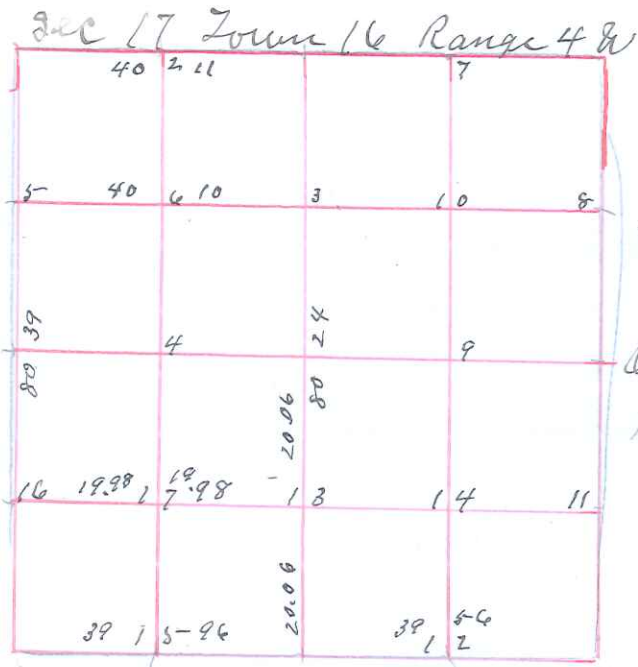 Sec 17 Town 16 Range 4 W
40 2 11 7
5 40 6 10 3 10 8
80 39 4 80 24 9
20.06
16 19.98 17 19.98 13 14 11
20.06
39 15-96 39 12 56